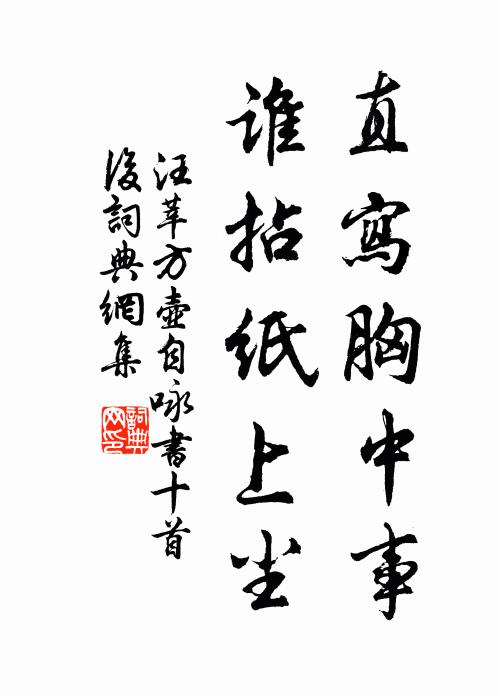 直寫胸中事
誰拈紙上尘
汪莘方壺自咏書十首
後詞典網集
詞典
网印